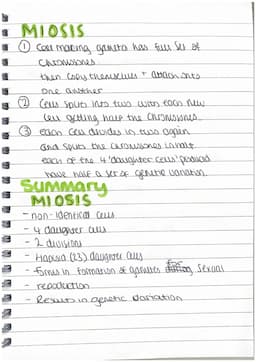 MIOSIS
① Cell making gameta has full set of
Chromosomes
then copy themselves + attach onto
one another
② Cell splits into two with each new
cell getting half the chromosomes.
③ each cell divides in two again
and splits the chromosomes in half.
each of the 4 'daughter cells' produced
have half a set of genetic variation.
Summary
MIOSIS
- non-identical cells
- 4 daughter cells
- 2 divisions
- Haploid (23) daughter cells
- in formation of gametes for sexual
- reproduction
- Results in genetic variation